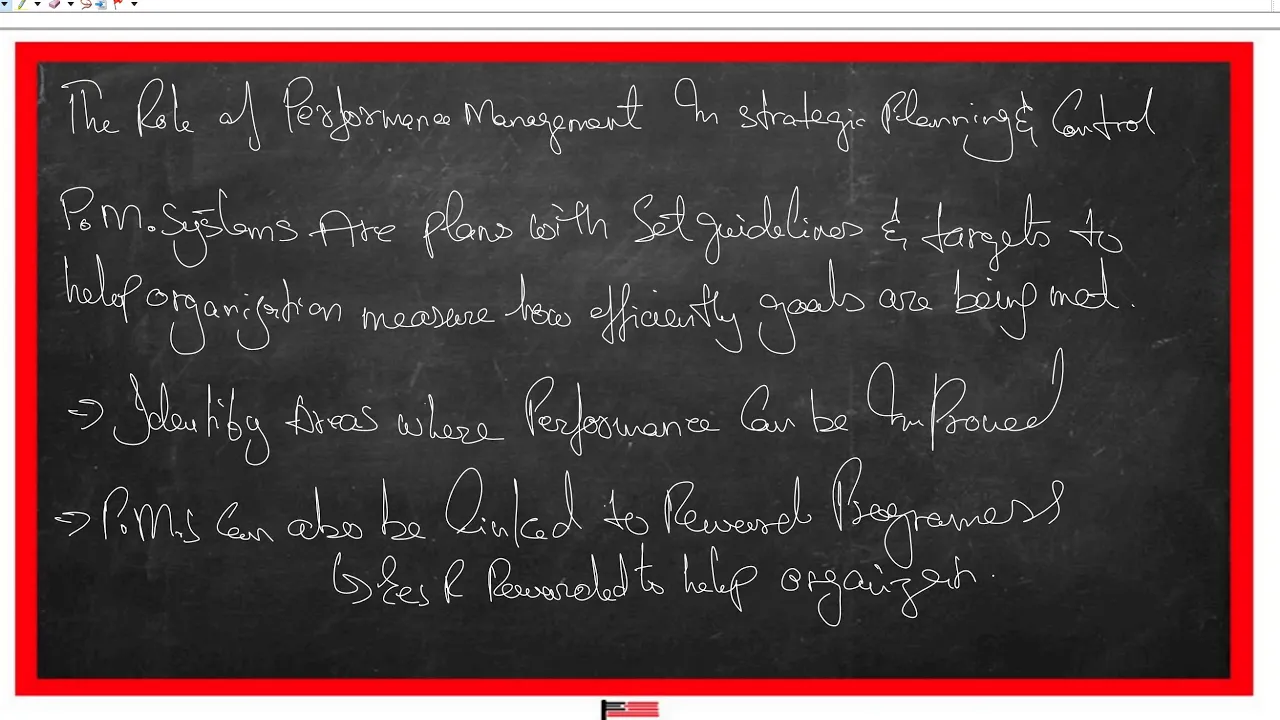 The Role of Performance Management In strategic Planning & Control
P.M. Systems Are plans with Set guidelines & targets to
help organization measure how efficiently goals are being met.
→ Identify Areas where Performance Can be Improved
→ P.M.S Can also be linked to Reward Programess
↳ Ees R Rewarded to help organizatn.